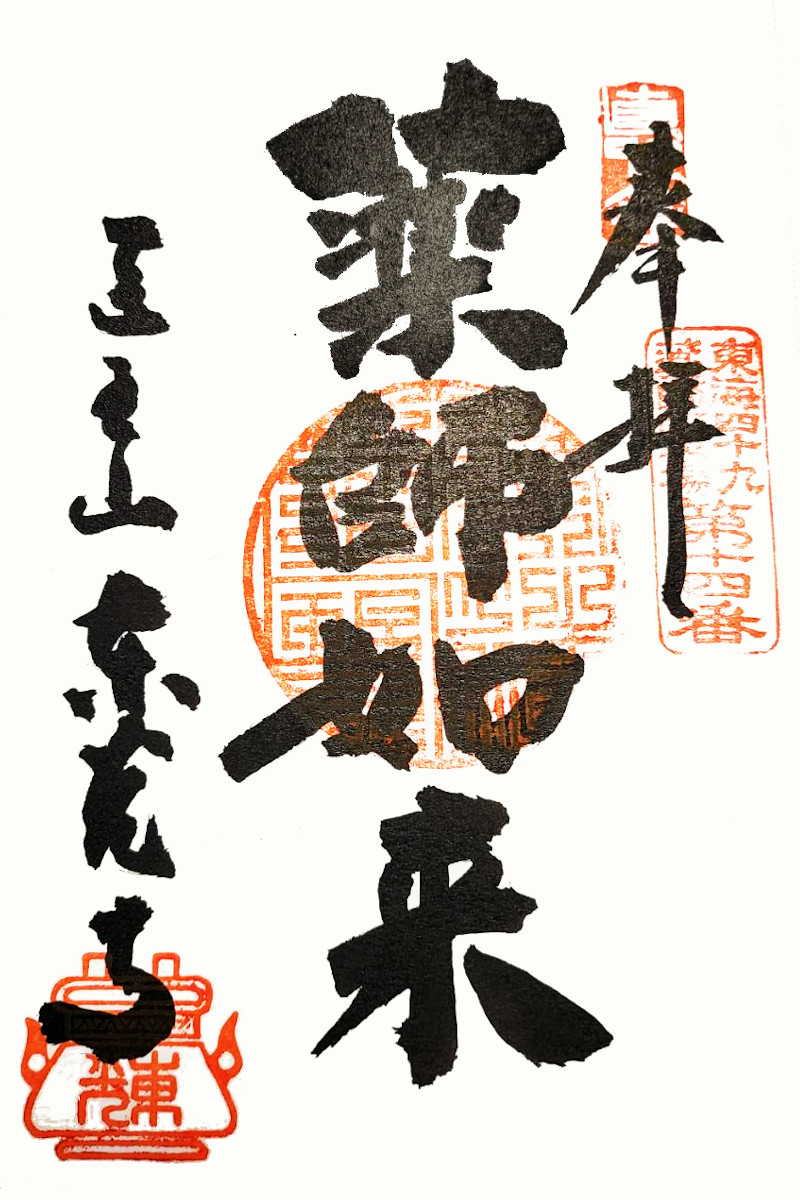 奉拝
東海四十九
第十四番
薬師如来
医王山
東光寺
東光